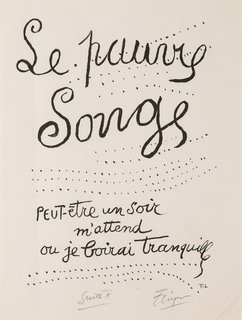 Le pauvre
Songe
PEUT-être un soir
m'attend
où je boirai tranquille
F.L